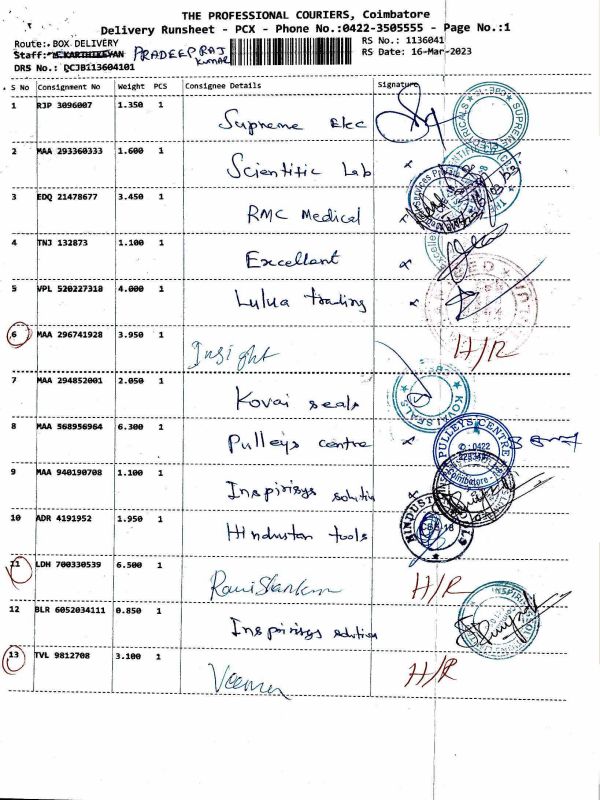 THE PROFESSIONAL COURIERS, Coimbatore
Delivery Runsheet - PCX - Phone No.:0422-3505555 - Page No.:1
Route: BOX DELIVERY RS No.: 1136041
Staff: B.KARTHIKEYAN PRADEEP RAJ KUMAR RS Date: 16-Mar-2023
DRS No.: DCJB113604101
S No Consignment No Weight PCS Consignee Details Signature
1 RJP 3096007 1.350 1 Supreme Elec
2 MAA 293360333 1.600 1 Scientific Lab
3 EDQ 21478677 3.450 1 RMC Medical
4 TNJ 132873 1.100 1 Excellant
5 VPL 520227318 4.000 1 Lulua trading
6 MAA 296741928 3.950 1 Insight H/R
7 MAA 294852001 2.050 1 Kovai seals KOVAI SEALS
8 MAA 568956964 6.300 1 Pulleys centre PULLEYS CENTRE 0422 Coimbatore
9 MAA 940190708 1.100 1 Inspirisys solutin
10 ADR 4191952 1.950 1 Hindustan tools HINDUSTAN
11 LDH 700330539 6.500 1 Ravi Shankar H/R
12 BLR 6052034111 0.850 1 Inspirisys solution
13 TVL 9812708 3.100 1 H/R